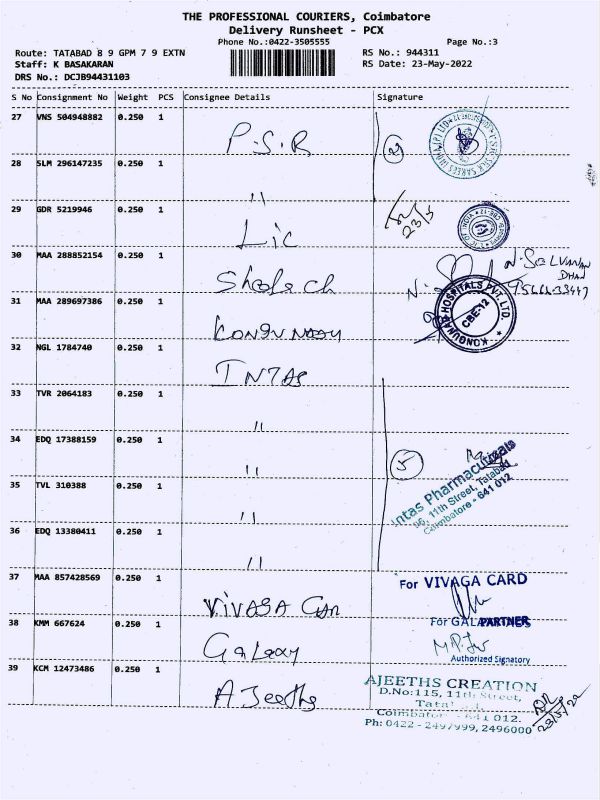 THE PROFESSIONAL COURIERS, Coimbatore
Delivery Runsheet - PCX
Phone No.:0422-3505555 Page No.:3
Route: TATABAD 8 9 GPM 7 9 EXTN RS No.: 944311
Staff: K BASAKARAN RS Date: 23-May-2022
DRS No.: DCJB94431103
S No Consignment No Weight PCS Consignee Details Signature
27 VNS 504948882 0.250 1 P.S.R 2
28 SLM 296147235 0.250 1 "
29 GDR 5219946 0.250 1 Lic 23/5
30 MAA 288852154 0.250 1 N. SELVANAN
DHAN
31 MAA 289697386 0.250 1 KONGUNADU HOSPITALS PVT. LTD. CBE-12
32 NGL 1784740 0.250 1 INTAS
33 TVR 2064183 0.250 1 "
34 EDQ 17388159 0.250 1 " 5
35 TVL 310388 0.250 1 " Intas Pharmaceuticals
11th Street, Tatabad
Coimbatore - 641 012
36 EDQ 13380411 0.250 1 "
37 MAA 857428569 0.250 1 VIVAGA Car For VIVAGA CARD
PARTNER
38 KMM 667624 0.250 1 Galaxy For
Authorized Signatory
39 KCM 12473486 0.250 1 AJeeths AJEETHS CREATION
D.No:115, 11th Street,
Coimbatore - 641 012.
Ph: 0422 - 2497999, 2496000